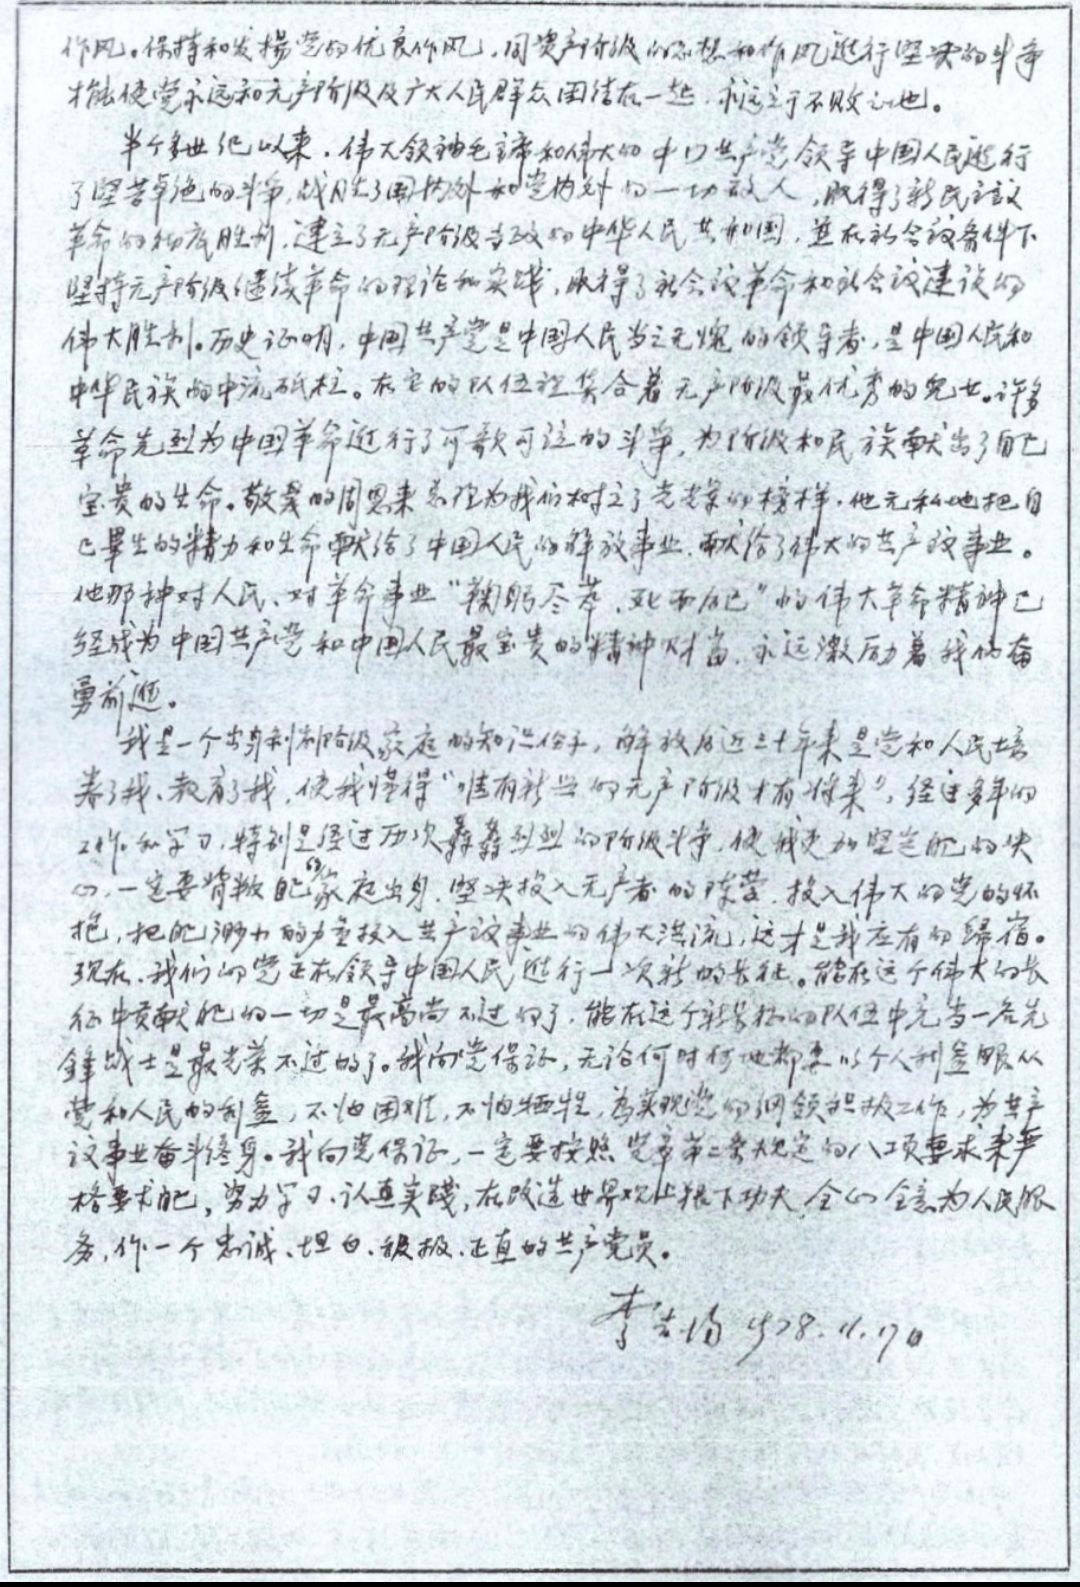 作风。保持和发扬党的优良作风，同资产阶级的思想和作风进行坚决的斗争
才能使党永远和无产阶级及广大人民群众团结在一起，永远立于不败之地。
半个多世纪以来，伟大领袖毛主席和伟大的中国共产党领导中国人民进行
了坚苦卓绝的斗争，战胜了国内外和党内外的一切敌人，取得了新民主主议
革命的彻底胜利，建立了无产阶级专政的中华人民共和国，并在社会议条件下
坚持无产阶级继续革命的理论和实践，取得了社会议革命和社会议建设的
伟大胜利。历史证明，中国共产党是中国人民当之无愧的领导者，是中国人民和
中华民族的中流砥柱。在它的队伍里集合着无产阶级最优秀的儿女。许多
革命先烈为中国革命进行了可歌可泣的斗争，为阶级和民族献出了自己
宝贵的生命。敬爱的周恩来总理为我们树立了光荣的榜样，他无私地把自
己毕生的精力和生命献给了中国人民的解放事业，献给了伟大的共产议事业。
他那种对人民、对革命事业“鞠躬尽萃，死而后已”的伟大革命精神已
经成为中国共产党和中国人民最宝贵的精神财富，永远激励着我们奋
勇前进。
我是一个出身剥削阶级家庭的知识份子，解放后近三十年来是党和人民培
养了我、教育了我，使我懂得“惟有新兴的无产阶级才有将来”，经过多年的
工作和学习，特别是经过历次轰轰烈烈的阶级斗争，使我更加坚定自己的决
心，一定要背叛自己的家庭出身，坚决投入无产者的阵营，投入伟大的党的怀
抱，把自己渺小的力量投入共产议事业的伟大洪流，这才是我应有的归宿。
现在，我们的党正在领导中国人民进行一次新的长征。能在这个伟大的长
征中贡献自己的一切是最高尚不过的了，能在这个新长征的队伍中充当一名先
锋战士是最光荣不过的了。我向党保证，无论何时何地都要以个人利益服从
党和人民的利益，不怕困难，不怕牺牲，为实现党的纲领积极工作，为共产
议事业奋斗终身。我向党保证，一定要按照党章第二条规定的八项要求来严
格要求自己，努力学习、认真实践，在改造世界观上狠下功夫，全心全意为人民服
务，作一个忠诚、坦白、积极、正直的共产党员。
李 1978.11.17日